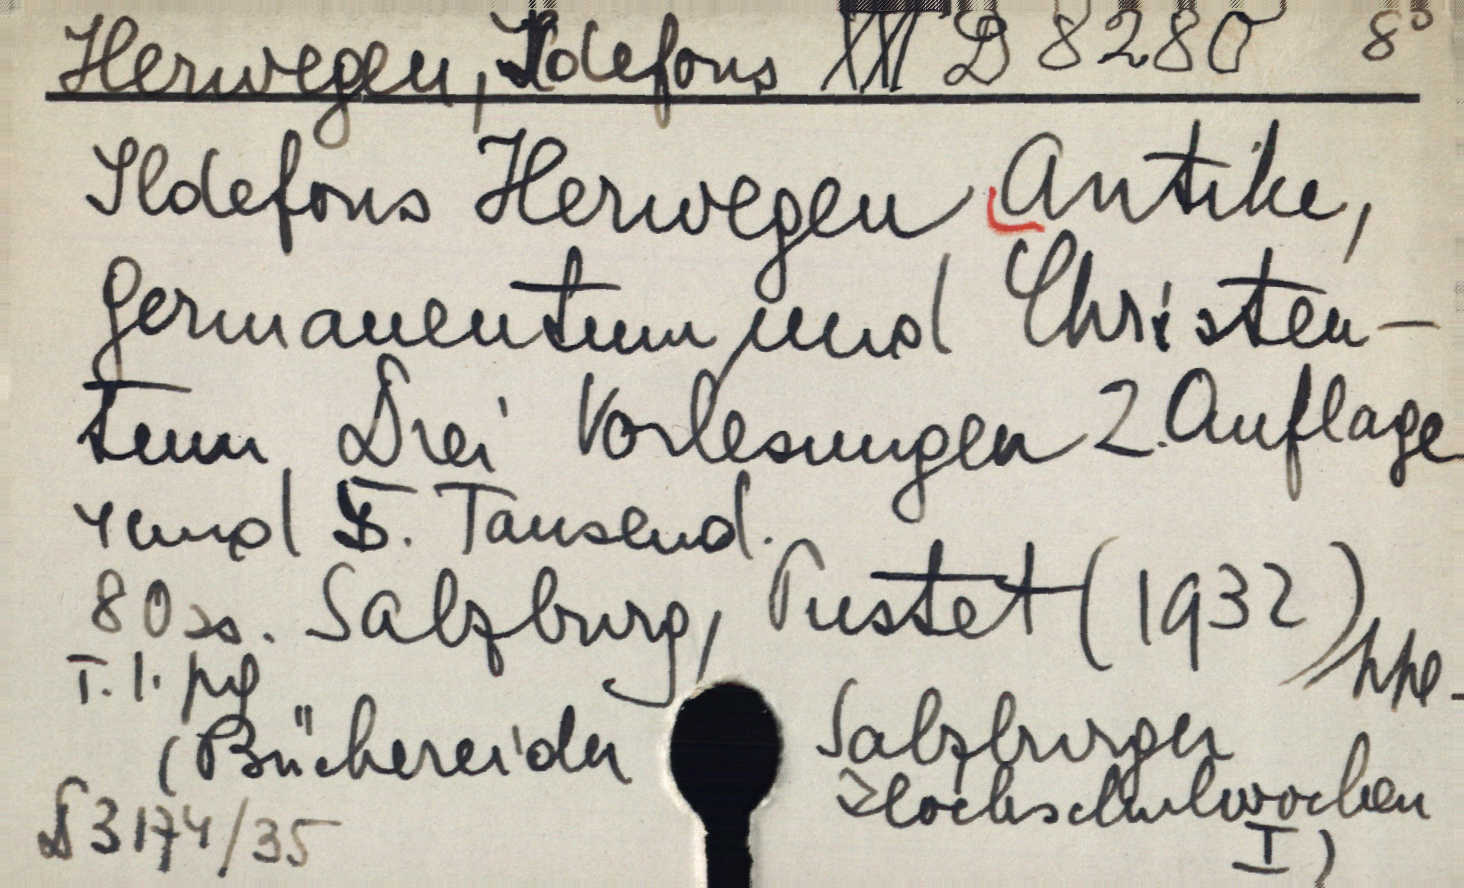 Herwegen, Ildefons XXI D 8280 8°
Ildefons Herwegen Antike,
Germanentum und Christen-
tum Drei Vorlesungen 2. Auflage
4 und 5. Tausend.
80 ss. Salzburg, Pustet (1932)
I. 1.
(Bücherei der Salzburger
Hochschulwochen
I)
3174/35